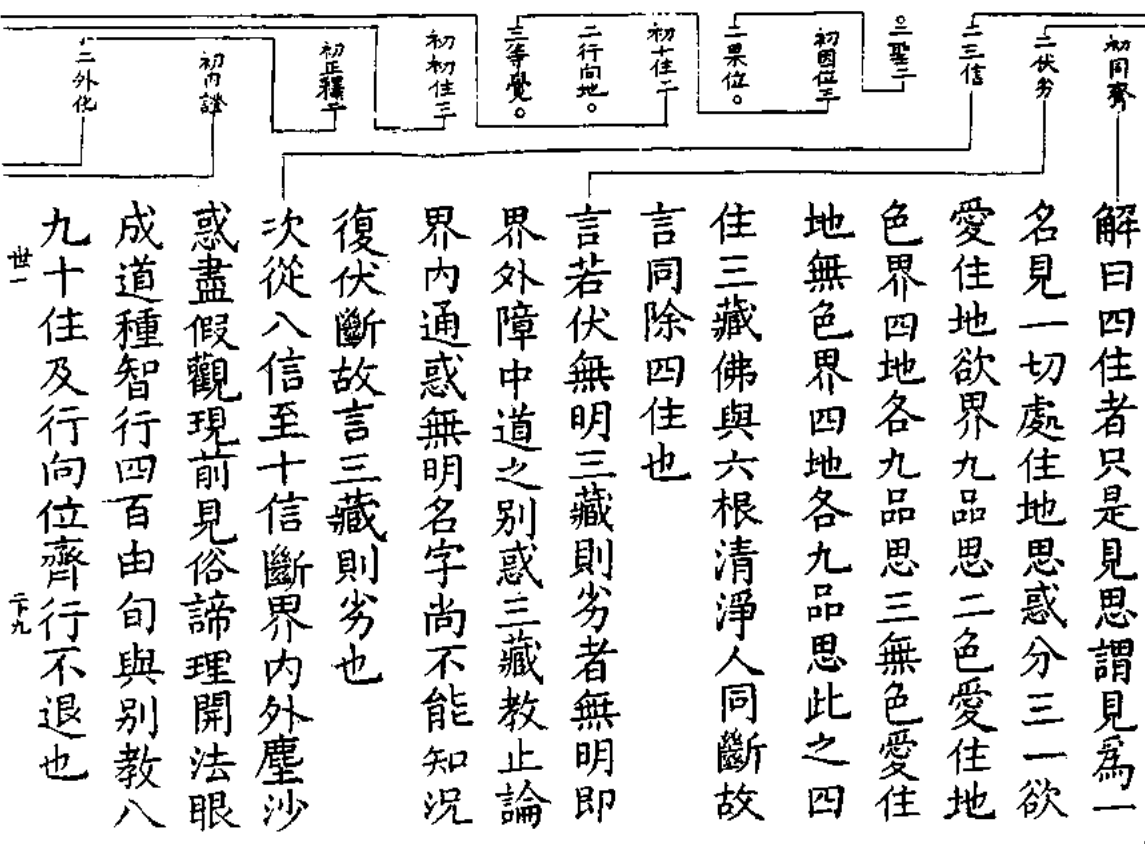 初同齊
二伏劣
二三信
○三聖二
初因位三
二果位○
初十住二
二行向地○
三等覺○
初初住三
初正釋二
初内證
二外化
解曰四住者只是見思謂見爲一
名見一切處住地思惑分三一欲
愛住地欲界九品思二色愛住地
色界四地各九品思三無色愛住
地無色界四地各九品思此之四
住三藏佛與六根清淨人同斷故
言同除四住也
言若伏無明三藏則劣者無明即
界外障中道之別惑三藏教止論
界内通惑無明名字尚不能知況
復伏斷故言三藏則劣也
次從八信至十信斷界内外塵沙
惑盡假觀現前見俗諦理開法眼
成道種智行四百由旬與別教八
九十住及行向位齊行不退也
世一
二下九